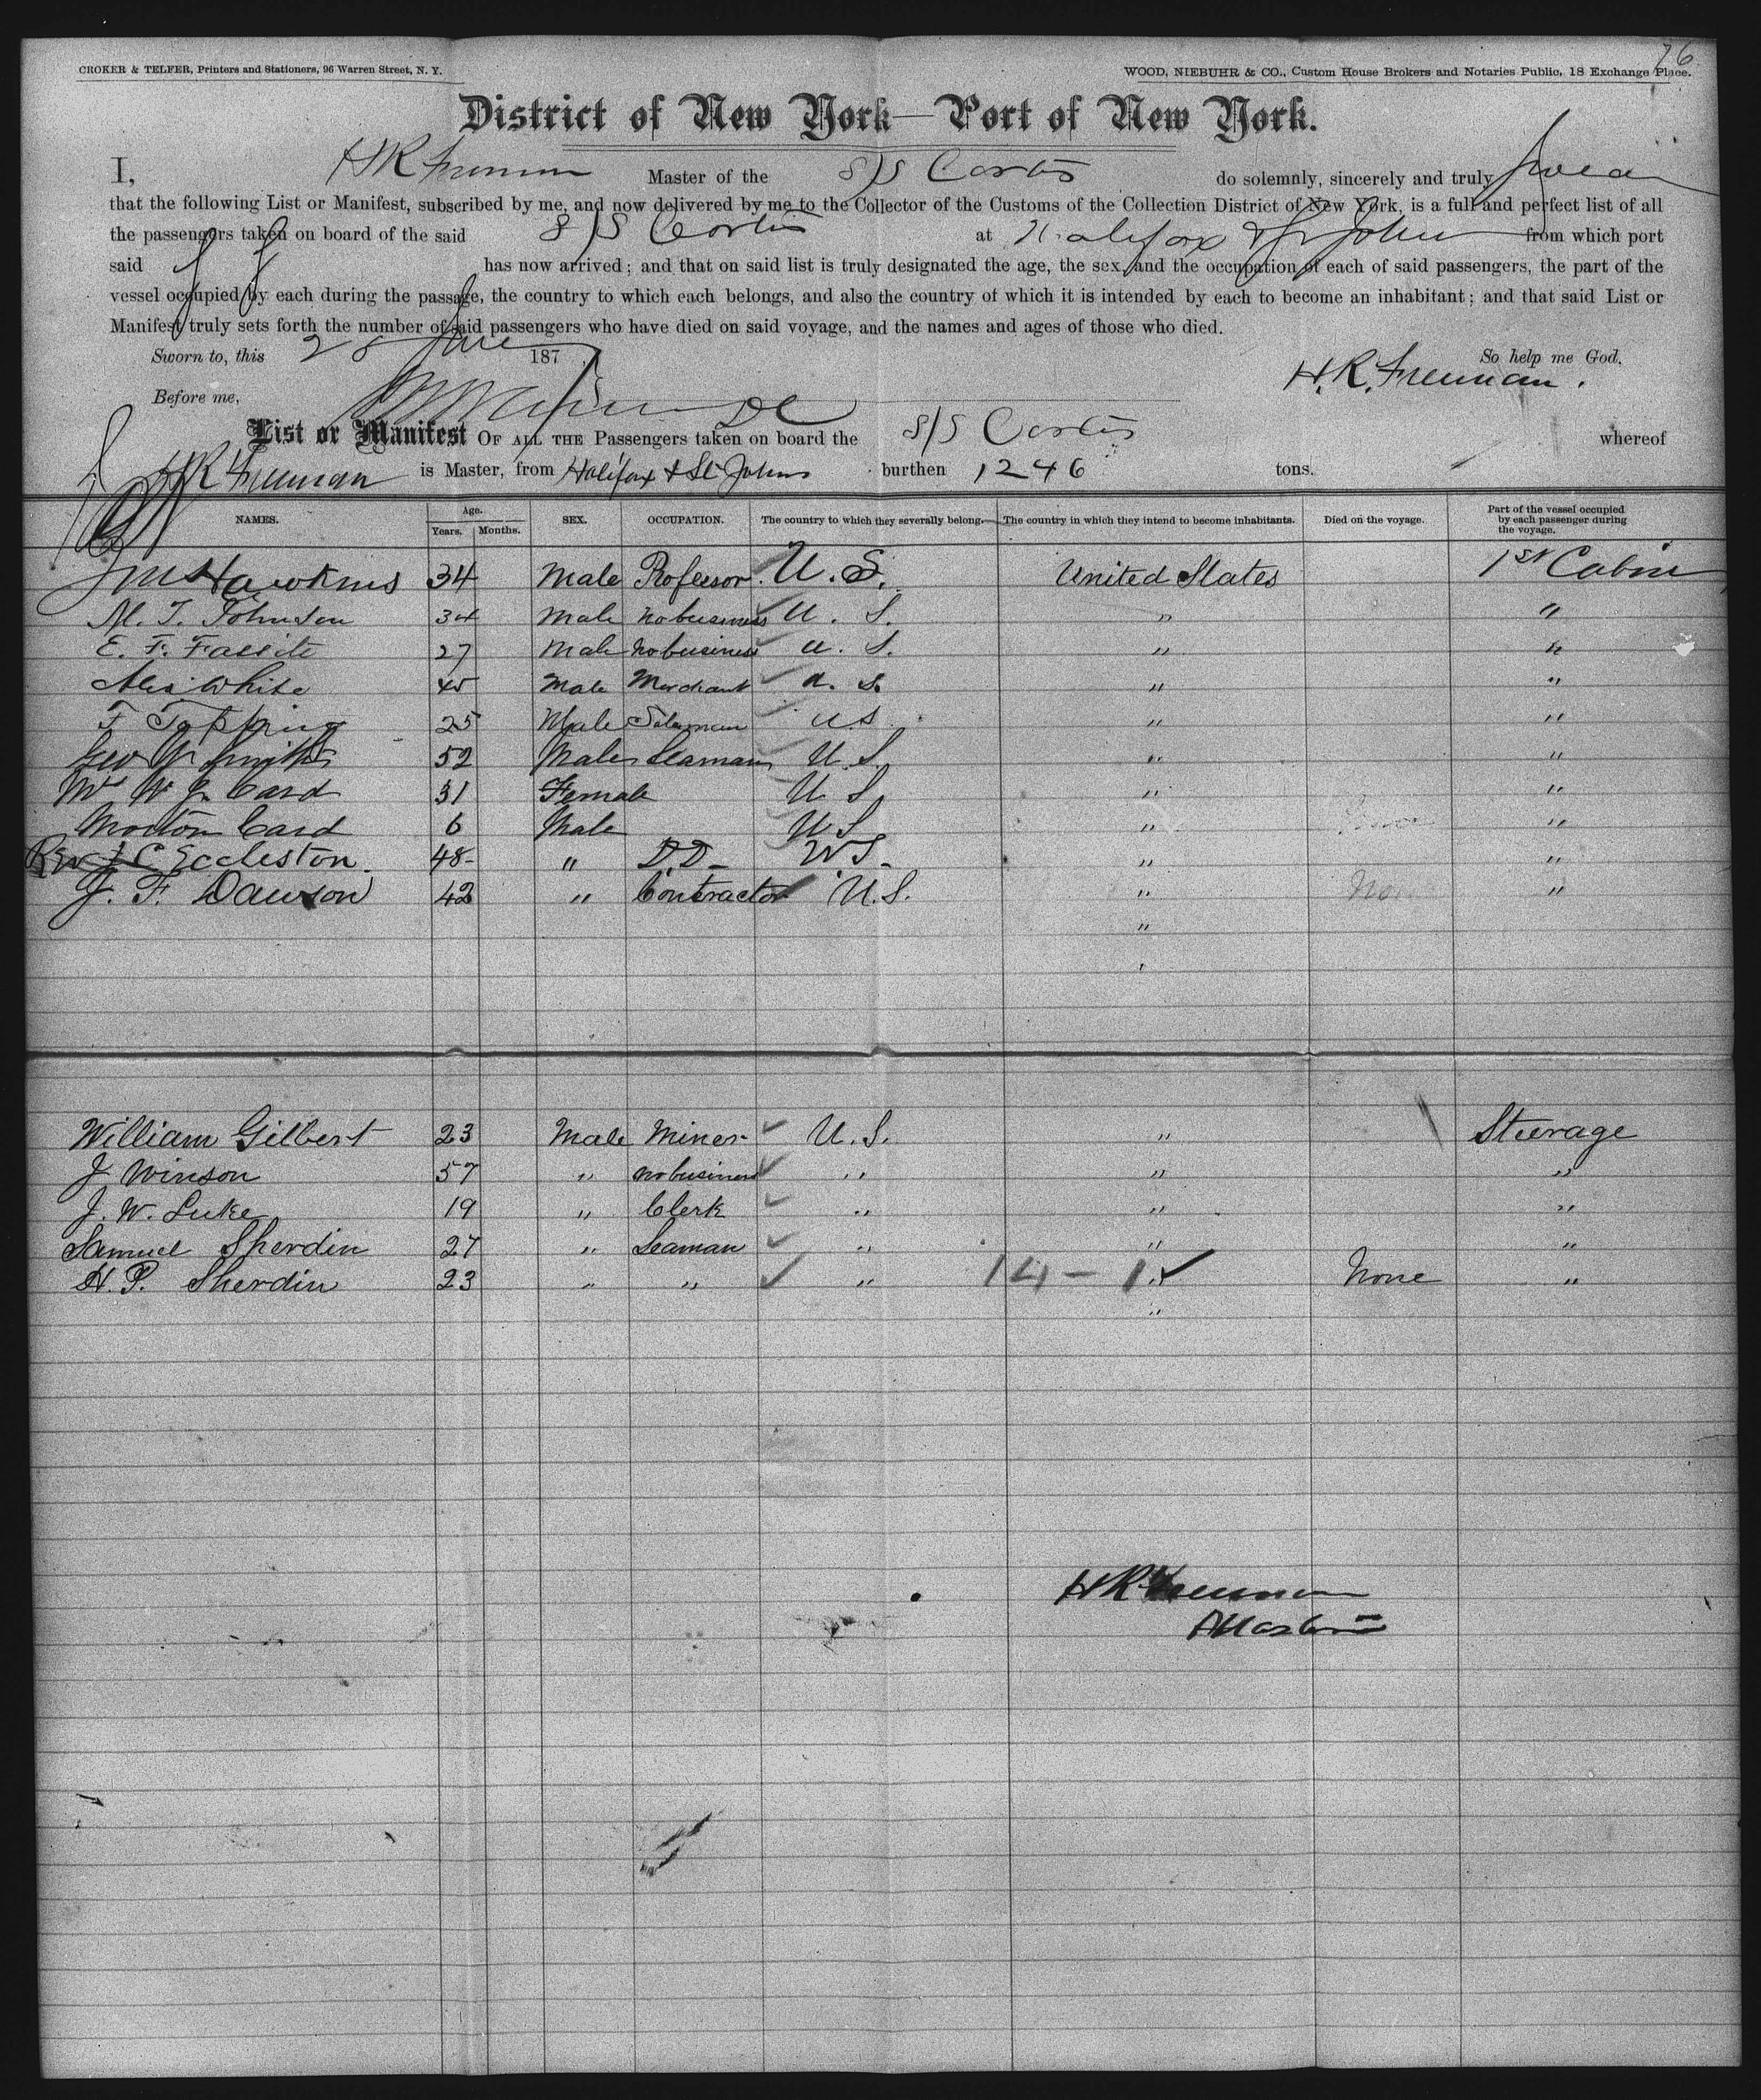 76
CROKER & TELFER, Printers and Stationers, 96 Warren Street, N. Y.
WOOD, NIEBUHR & CO., Custom House Brokers and Notaries Public, 18 Exchange Place.
District of New York—Port of New York.
I, H R Freeman Master of the S/S Cortes do solemnly, sincerely and truly swear
that the following List or Manifest, subscribed by me, and now delivered by me to the Collector of the Customs of the Collection District of New York, is a full and perfect list of all
the passengers taken on board of the said S/S Cortes at Halifax & St John from which port
said has now arrived; and that on said list is truly designated the age, the sex, and the occupation of each of said passengers, the part of the
vessel occupied by each during the passage, the country to which each belongs, and also the country of which it is intended by each to become an inhabitant; and that said List or
Manifest truly sets forth the number of said passengers who have died on said voyage, and the names and ages of those who died.
Sworn to, this 28 June 187 So help me God,
H. R. Freeman.
Before me,
List or Manifest OF ALL THE Passengers taken on board the S/S Cortes whereof
H R Freeman is Master, from Halifax & St Johns burthen 1246 tons.
NAMES. Age. Years. Months. SEX. OCCUPATION. The country to which they severally belong. The country in which they intend to become inhabitants. Died on the voyage. Part of the vessel occupied by each passenger during the voyage.
Hawkins 34 Male Professor U. S. United States 1st Cabin
M. T. Johnson 34 Male no business U. S. " "
E. F. Fassitt 27 Male no business U. S. " "
Alex White 45 Male Merchant U. S. " "
F Topping 25 Male Salesman U S " "
Geo W Smith 52 Male Seaman U. S. " "
Mrs W J. Card 31 Female U S " "
Morton Card 6 Male U S " "
Rev J C Eccleston. 48- " D.D- U S. " "
J. F. Dawson 42 " Contractor U. S. " "
"
"
William Gilbert 23 Male Miner U. S. " Steerage
J Winson 57 " no business " " "
J. W. Luke 19 " Clerk " " "
Samuel Sherdin 27 " Seaman " " "
H. P. Sherdin 23 " " " 14 - 1 " None "
"
H R Freeman
Master